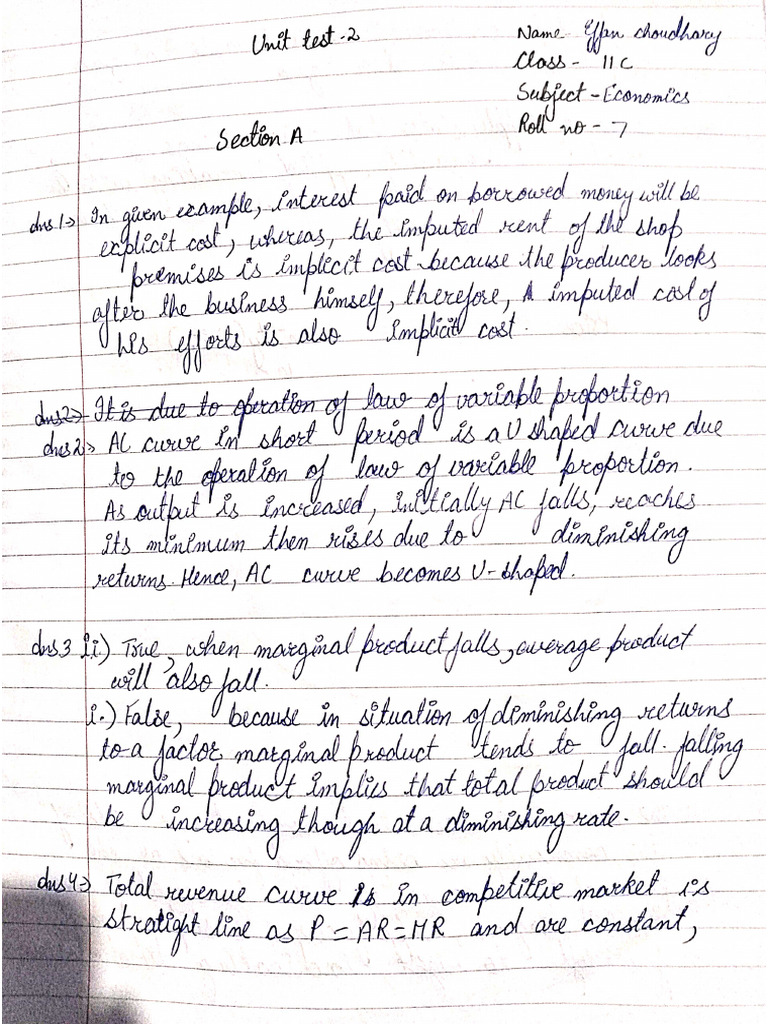 Unit test-2
Name Effan choudhary
Class - 11C
Subject - Economics
Roll no - 7
Section A
Ans 1→ In given example, interest paid on borrowed money will be
explicit cost, whereas, the imputed rent of the shop
premises is implicit cost because the producer looks
after the business himself, therefore, imputed cost of
his efforts is also implicit cost.
Ans 2→ It is due to operation of law of variable proportion
Ans 2→ AC curve in short period is a U shaped curve due
to the operation of law of variable proportion.
As output is increased, initially AC falls, reaches
its minimum then rises due to diminishing
returns. Hence, AC curve becomes U-shaped.
Ans 3 ii.) True, when marginal product falls, average product
will also fall.
i.) False, because in situation of diminishing returns
to a factor marginal product tends to fall. falling
marginal product implies that total product should
be increasing though at a diminishing rate.
Ans 4→ Total revenue curve is in competitive market is
stratight line as P = AR = MR and are constant,